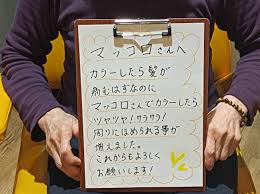 マッコロさんへ
カラーしたら髪が
痛むはずなのに
マッコロさんでカラーしたら
ツヤツヤ！サラサラ！
周りにほめられる事が
増えました。
これからもよろしく
お願いします！